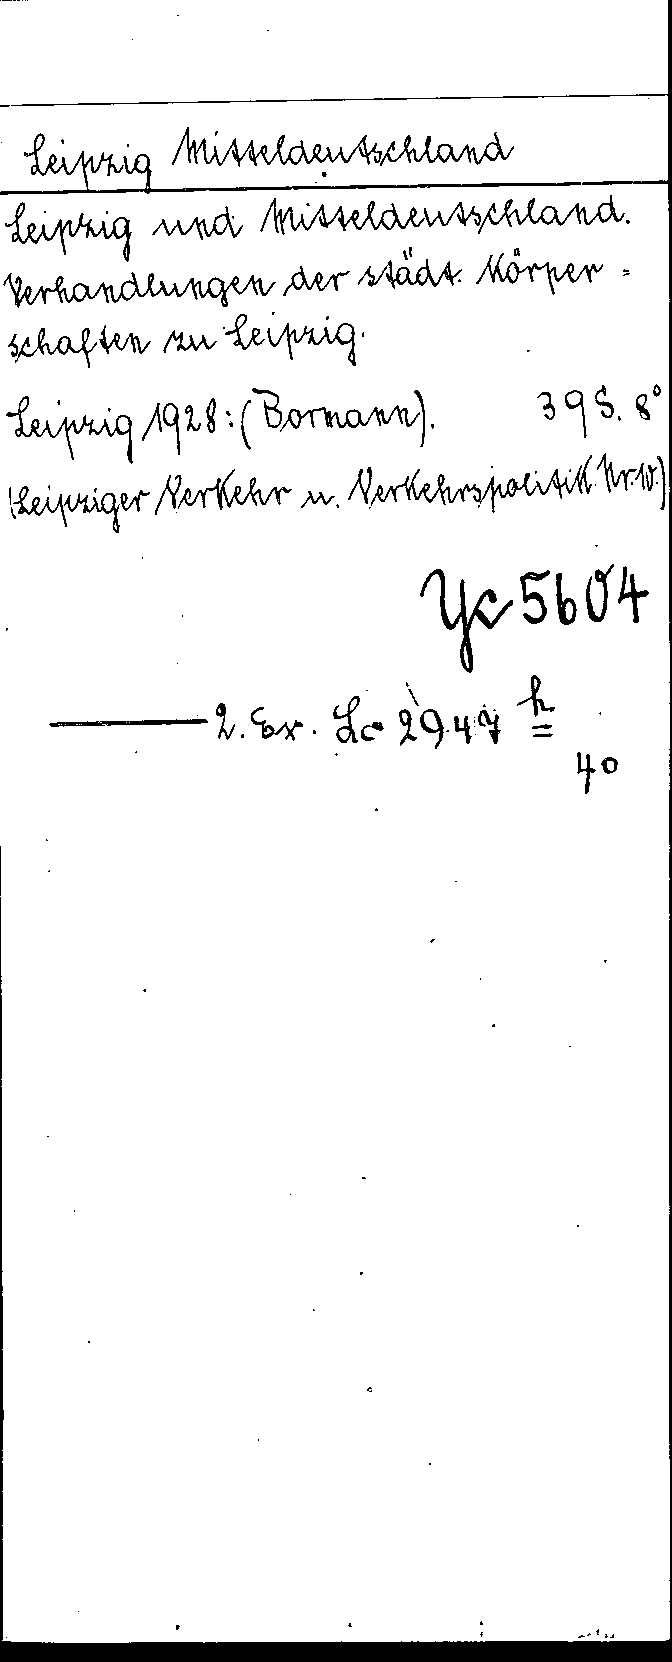 Leipzig Mitteldeutschland
Leipzig und Mitteldeutschland.
Verhandlungen der städt. Körper=
schaften zu Leipzig.
Leipzig 1928: (Bormann). 39 S. 8°
(Leipziger Verkehr u. Verkehrspolitik. Nr. 10.)
Yc 5604
— 2. Ex. Lc 2947 h
40